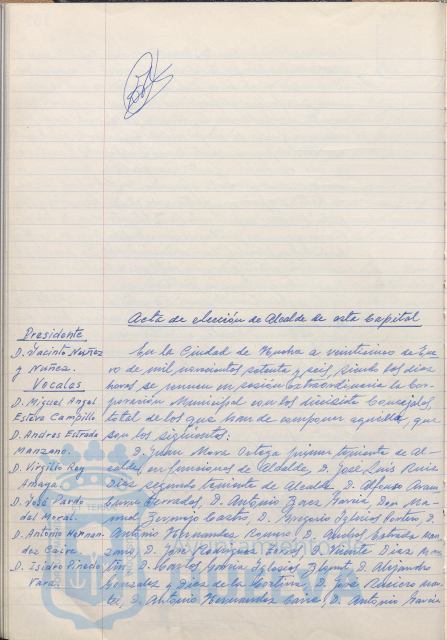 Acta de elección de Alcalde de esta Capital
Presidente
D. Jacinto Nuñez
y Nuñez.
Vocales
D. Miguel Angel
Esteva Campillo
D. Andres Estrada
Manzano.
D. Virgilio Rey
D. José Pardo
del Moral.
D. Antonio Hernan-
dez Caire.
D. Isidro Pinedo
Vara.
En la Ciudad de Huelva a veinticinco de Ene-
ro de mil novecientos setenta y seis, siendo las diez
horas se reunen en sesión extraordinaria la Cor-
poración Municipal con los diecisiete Concejales,
total de los que han de componer aquella, que
son los siguientes:
D. Juan Mora Ortega primer teniente de Al-
calde, en funciones de Alcalde, D. José Luis Ruiz
Díaz segundo teniente de Alcalde D. Alfonso Aram-
buru Terrades, D. Antonio Baez García, Don Ma-
nuel Bermejo Castro, D. Gregorio Iglesias
Antonio Hernandez Romero, D. Andres Estrada Man-
zano, D. José Rodriguez D. Vicente Diaz
D. Carlos Iglesias D. Alejandro
Gonzalez Diez de la Cortina, D. José
D. Antonio Hernandez Caire, D. Antonio García